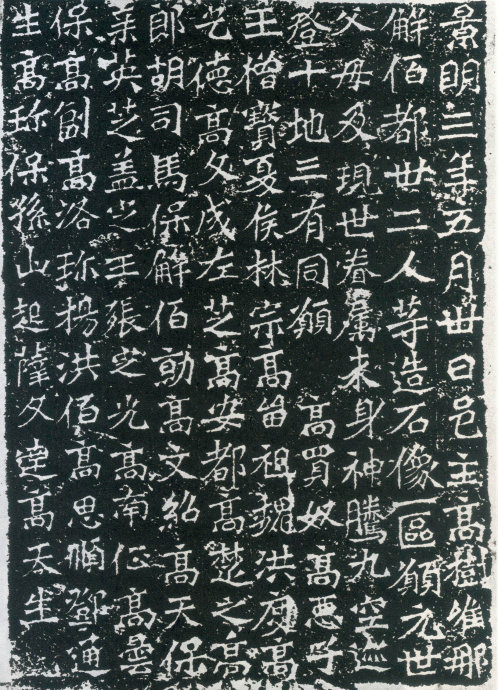 景明三年五月卅日邑主高樹唯那
解佰都卅二人等造石像一區願元世
父母及現世眷屬来身神騰九空迹
登十地三有同願 高買奴高悪子
王僧寶夏侯林宗高留祖魏洪度高
乞德高文成左芝高安都高楚之高
郎胡司馬保解佰勛高文紹高天保
孟英芝盖芝王張芝光高南征高曇
保高副高洛珎楊洪佰高思順鄧通
生高珎保孫山起薩文達高天生